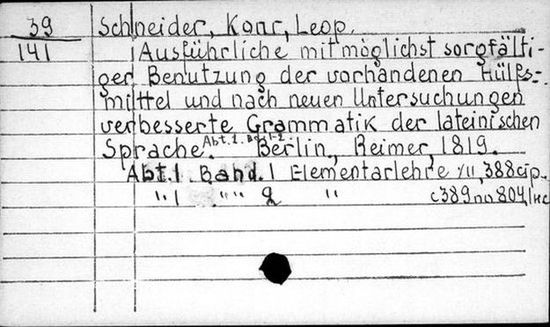 39 Schneider, Konr, Leop.
141 Ausführliche mit möglichst sorgfälti-
ger Benutzung der vorhandenen Hülfs-
mittel und nach neuen Untersuchungen
verbesserte Grammatik der lateinischen
Sprache. Abt. 1. Bd 1-2 Berlin, Reimer, 1819.
Abt. 1. Band. 1 Elementarlehre 388 стр.
" 1 " " 2 " с 389 по 804,